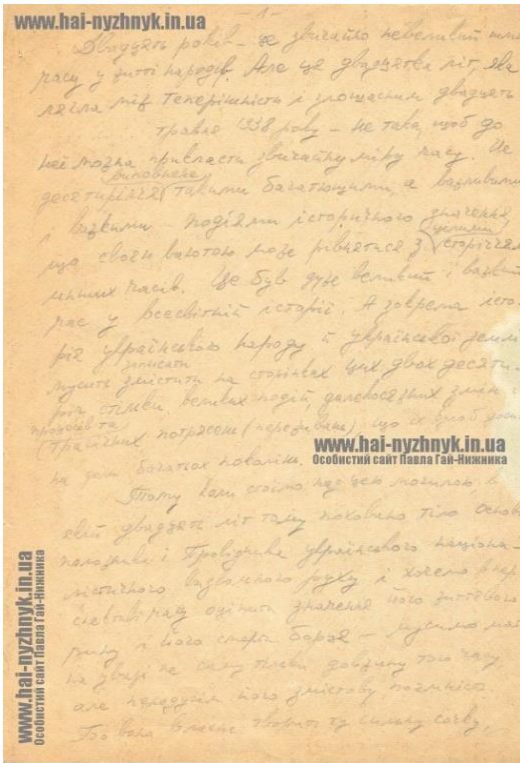 - 1 -
www.hai-nyzhnyk.in.ua
Двадцять років – це звичайно невеликий
часу у житті народів. Але ця двадцятка літ, яка
лягла між теперішністю і злощасним двадцять
травня 1938 року – не така, щоб до
неї можна прикласти звичайну міру часу. Це
виповнене
десятиріччя такими багатющими, а важливими
і важкими подіями історичного значення,
цілими
що своєю вагою може рівнятися з сторіччям
інших часів. Це був дуже великий і важкий
час у всесвітній історії. А зокрема істо-
рія українського народу й української землі
записати
мусить змістити на сторінках цих двох десяти-
річ стільки великих подій, далекосяжних змін
процесів та
трагічних потрясень (переживань), що їх
на долю багатьох поколінь.
www.hai-nyzhnyk.in.ua
Особистий сайт Павла Гай-Нижника
Тому коли стоїмо над цею могилою, в
якій двадцять літ тому поховано тіло Осново-
положника і Провідника українського націона-
лістичного визвольного руху, і хочемо
оцінити значення його життєвого
і його смерти борця – мусимо мати
на увазі не саму тільки довжину того часу,
але передусім його змістову поємність.
Бо вона власне творить ту сильну
www.hai-nyzhnyk.in.ua
Особистий сайт Павла Гай-Нижника